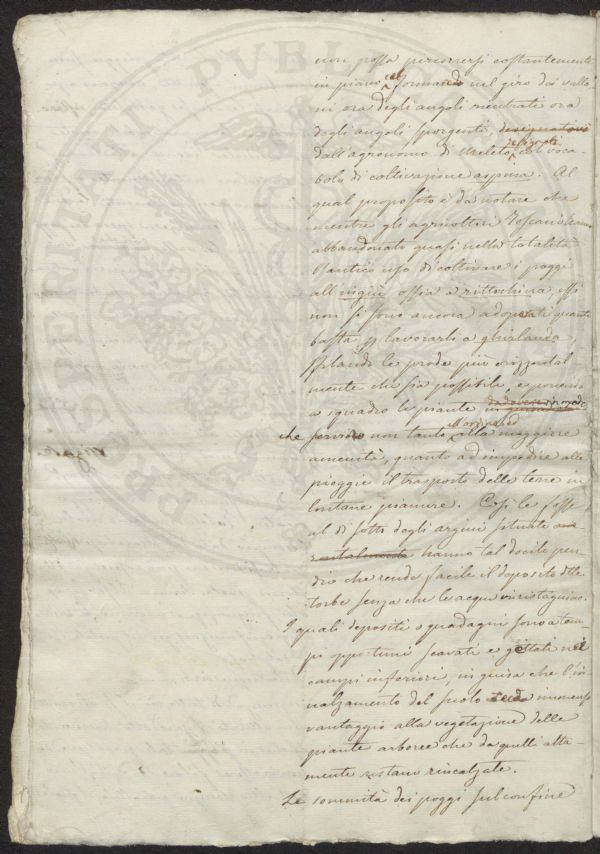 non possa percorrersi costantemente
in piano formando nel giro dei valloni
ni ora degli angoli rientrati ora
degli angoli sporgenti, designativi
dall'agronomo di Meleto col voca-
bolo di coltivazione a spina. Al
qual proposito è da notare che
mentre gli agricoltori Toscani hanno
abbandonato quasi nella totalità
l'antico uso di coltivare i poggi
all'ingiù ossia a rittochino essi
non si sono ancora adoprati quanto
basta a lavorarli a ghirlanda,
le prode più orizzontal
mente che sia possibile, e ponendo
a squadro le piante
che servirò non tanto alla maggiore
amenità, quanto ad impedire alle
pioggie il trasporto delle terre in
lontane pianure. Così le fosse
al di sotto degli argini situate
hanno tal docile pen-
dio che rende facile il deposito delle
torbe senza che le acque vi ristagnino.
I quali depositi o guadagni sono a tem-
pi opportuni scavati e gettati nei
campi inferiori, in guisa che l'in-
nalzamento del suolo immenso
vantaggio alla vegetazione delle
piante arboree che da quelli alta-
mente restano rincalzate.
Le sommità dei poggi sul confine